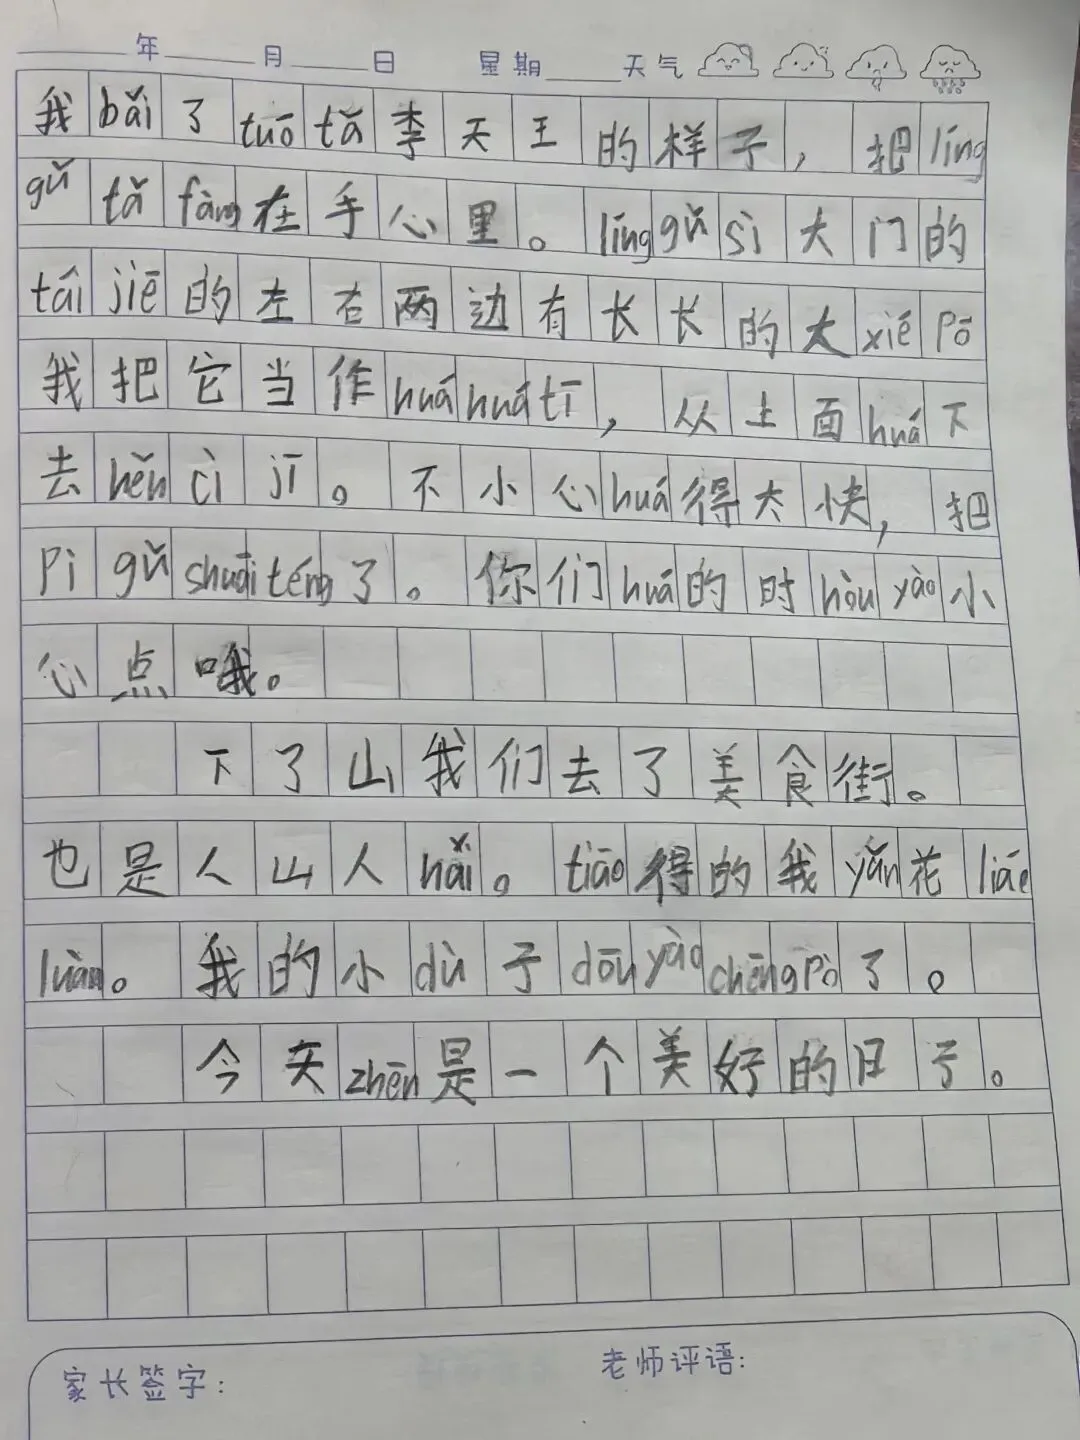 年 月 日 星期 天气
我bǎi了tuō tǎ李天王的样子，把líng
gǔ tǎ fàng在手心里。líng gǔ sì大门的
tái jiē的左右两边有长长的大xié pō
我把它当作huá huá tī，从上面huá下
去hěn cì jī。不小心huá得太快，把
pì gǔ shuāi téng了。你们huá的时hòu yào小
心点哦。
下了山我们去了美食街。
也是人山人hǎi。tiāo得的我yǎn花liáo
luàn。我的小dù子dōu yào chēng pò了。
今天zhēn是一个美好的日子。
家长签字： 老师评语：